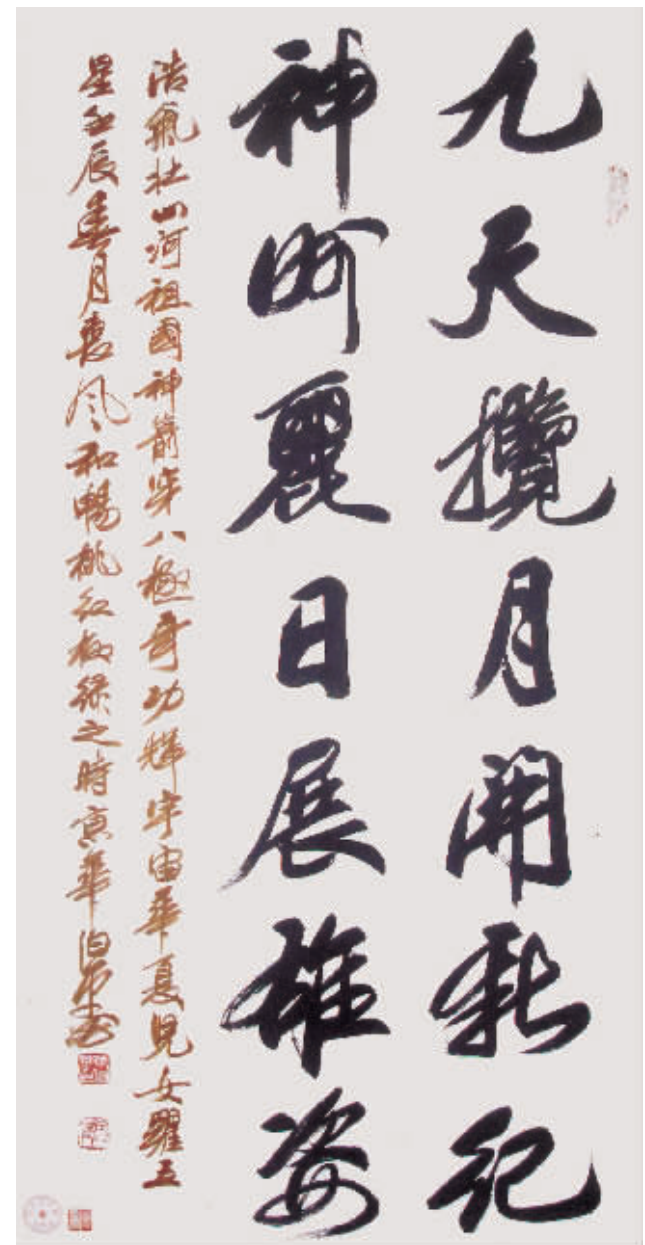 九天攬月開新紀
神州麗日展雄姿
浩氣壯山河祖國神箭穿八極奇功輝宇宙華夏兒女耀五
星壬辰春月惠風和暢桃紅柳綠之時京華